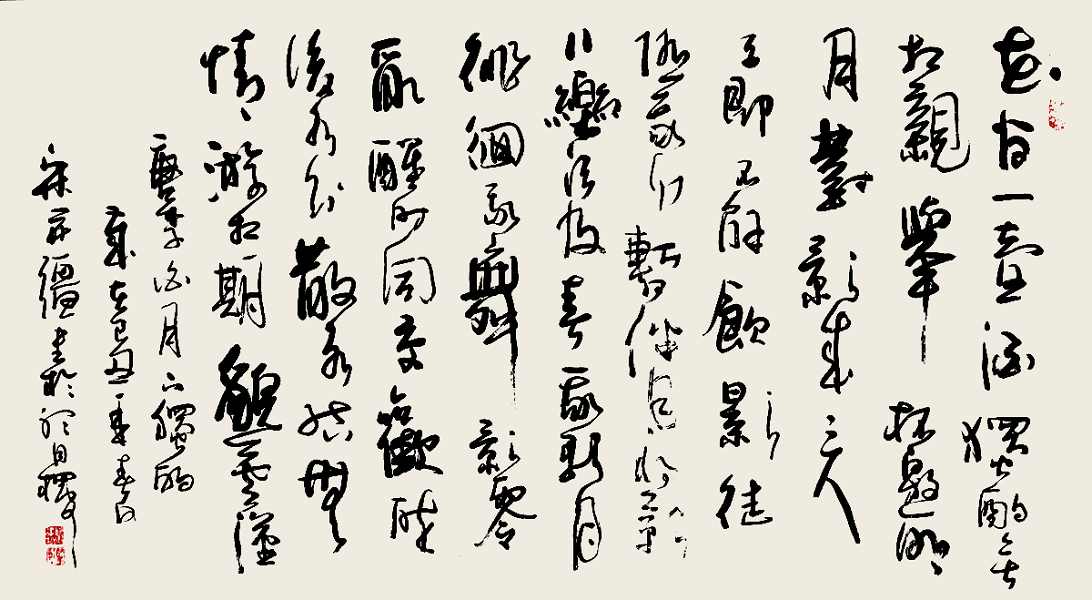 花間一壺酒獨酌無
相親舉杯邀明
月對影成三人
月即不解飲影徒
隨我身暫伴月將影
行樂須及春我歌月
徘徊我舞影零
亂醒時同交歡醉
後各分散永結無
情遊相期邈雲漢
唐李白月下獨酌
歲在己丑年春
書於